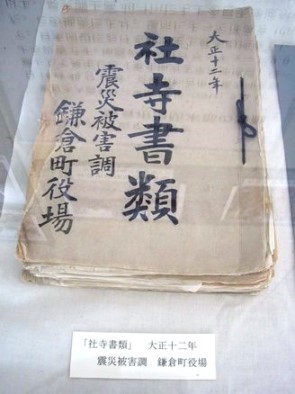 大正十二年
社寺書類
震災被害調
鎌倉町役場
「社寺書類」 大正十二年
震災被害調 鎌倉町役場